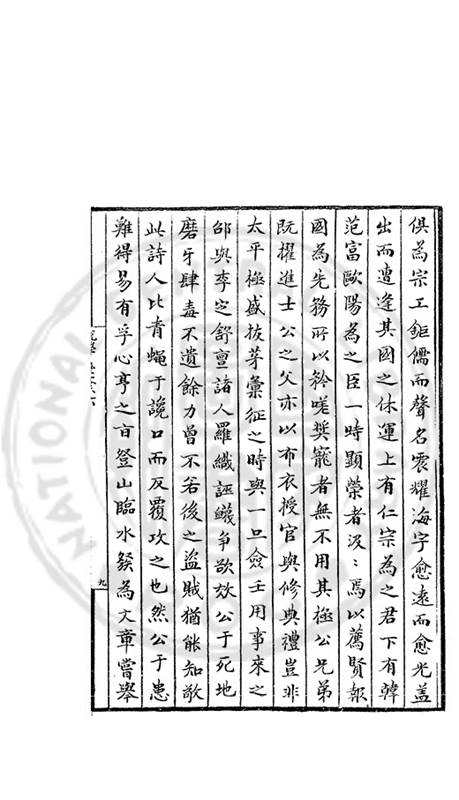 俱為宗工鉅儒而聲名震耀海宇愈遠而愈光蓋
出而遭逢其國之休運上有仁宗為之君下有韓
范富歐陽為之臣一時顯榮者汲:焉以薦賢報
國為先務所以矜嗟奬寵者無不用其極公兄弟
既擢進士公之父亦以布衣授官與修典禮豈非
太平極盛拔茅彙征之時與一旦僉壬用事來之
邵與李定舒亶諸人羅織誣衊爭欲效公于死地
磨牙肆毒不遺餘力曾不若後之盜賊猶能知敬
此詩人比青蠅于讒口而反覆攻之也然公于患
難得易有孚心亨之旨登山臨水發為文章嘗舉
九
NATIONAL